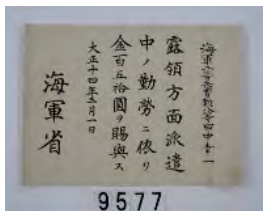 海軍 田中
露領方面派遣
中ノ勤勞ニ依リ
金百五拾圓ヲ賜與ス
大正十四年五月一日
海軍省
9577